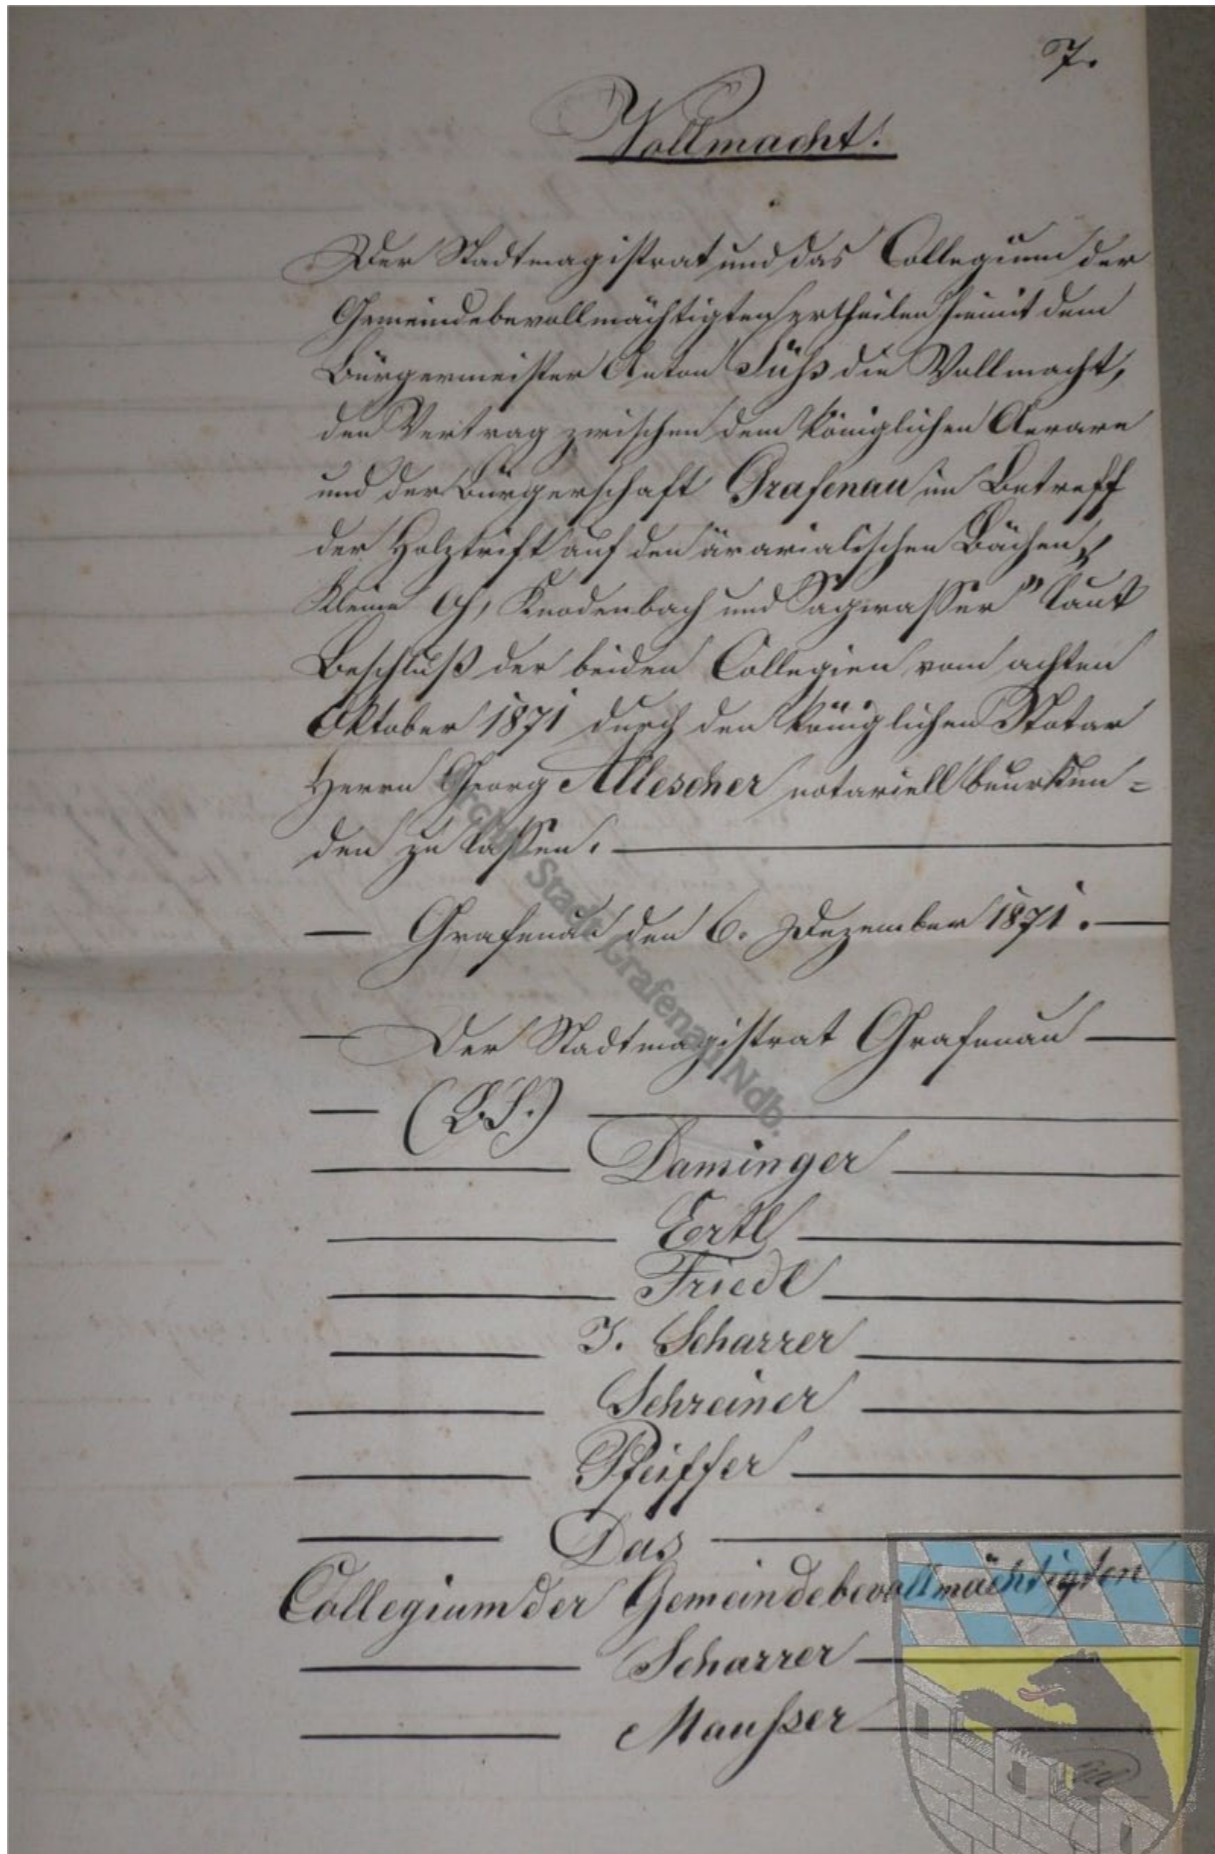 7.
Vollmacht.
Der Stadtmagistrat und das Collegium der
Gemeindebevollmächtigten ertheilen hiemit dem
Bürgermeister Anton Süß die Vollmacht,
den Vertrag zwischen dem königlichen Aerare
und der Bürgerschaft Grafenau im Betreff
der Holztrift auf den ärarialischen Bächen „
Kleine Oh, Knodenbach und Sagwasser" laut
Beschluß der beiden Collegien vom achten
Oktober 1871 durch den königlichen Notar
Herrn Georg Allescher notariell beurkun=
den zu lassen.
Grafenau den 6. Dezember 1871.
Der Stadtmagistrat Grafenau
(L.S.)
Daminger
Eertl
Friedl
J. Scharrer
Schreiner
Pfeiffer
Das
Collegium der Gemeindebevollmächtigten
Scharrer
Maußer
Archiv Stadt Grafenau Ndb.